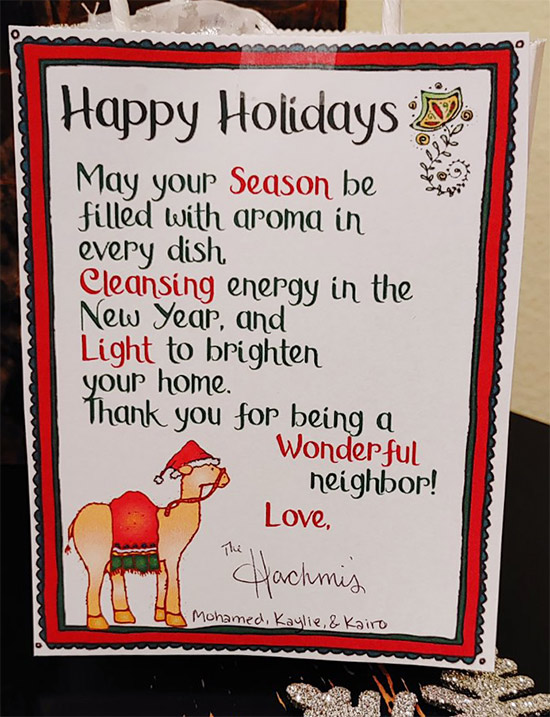 Happy Holidays
May your Season be
filled with aroma in
every dish,
Cleansing energy in the
New Year, and
Light to brighten
your home.
Thank you for being a
Wonderful
neighbor!
Love,
The
Hachmis
Mohamed, Kaylie, & Kairo